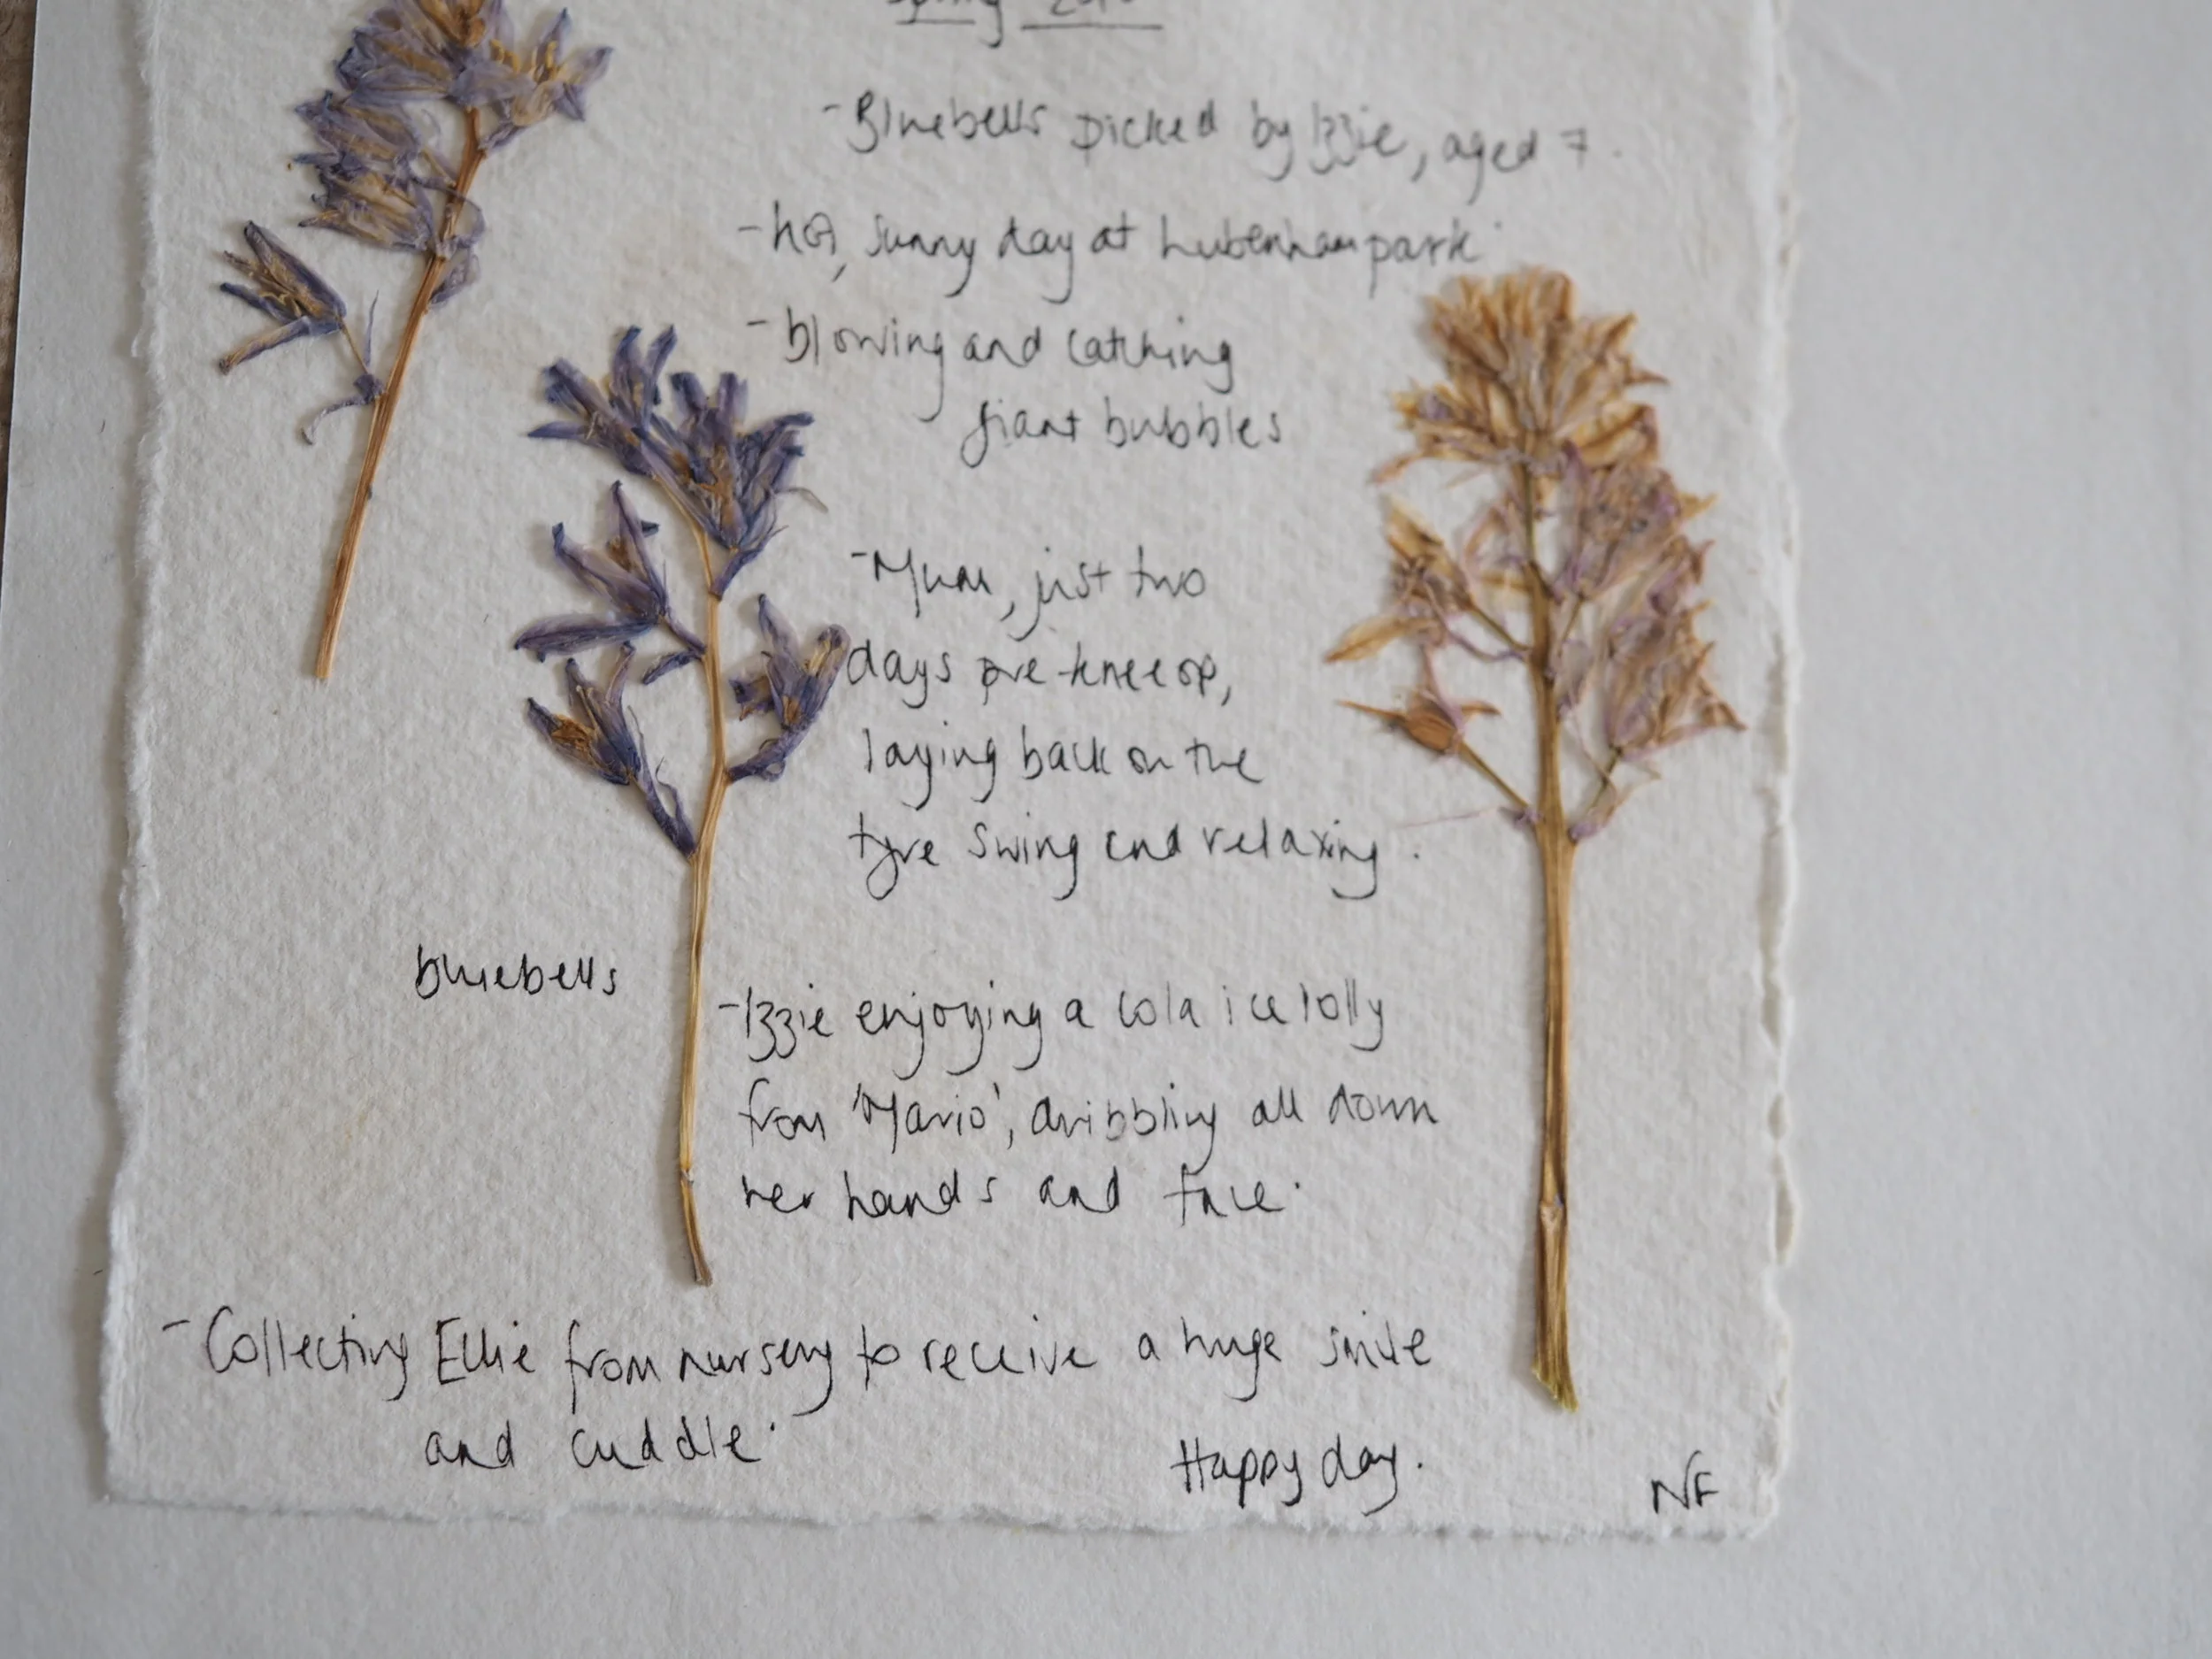 Spring
- Bluebells picked by Izzie, aged 7.
- hot, sunny day at Lubenham park.
- blowing and catching
giant bubbles
- Mum, just two
days pre-knee op,
laying back on the
tyre swing and relaxing.
bluebells
- Izzie enjoying a cola ice lolly
from 'Mario', dribbling all down
her hands and face.
- Collecting Ellie from nursery to receive a huge smile
and cuddle.
Happy day.
NF